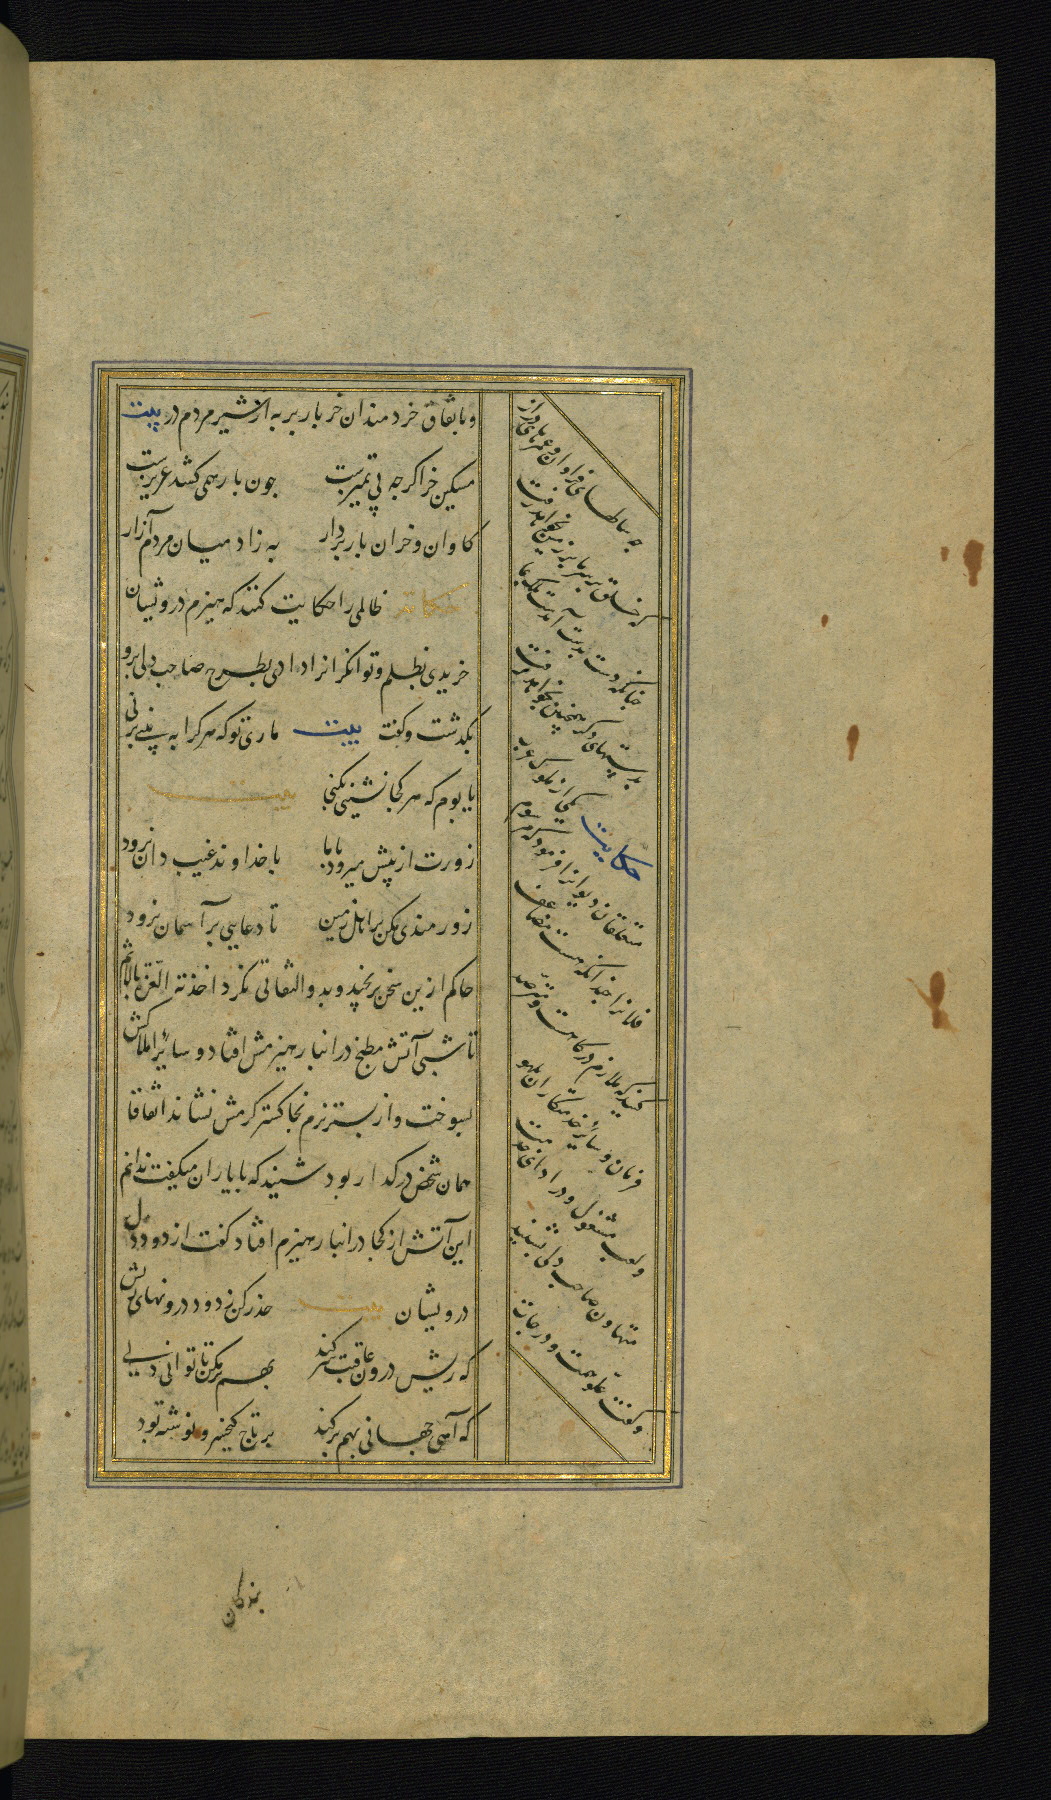 وباتفاق خردمندان خر باربر به از شیر مردم در بیت
مسکین خر اگر چه بی تمیزست چون بار همی کشد عزیزست
کاوان وخران بار بردار به زادمیان مردم آزار
حکایت ظالمی را حکایت کنند که هیزم درویشان
خریدی بظلم وتوانکرانرا دادی بطرح صاحب دلی برو
بکذشت وکفت بیت ماری تو که هر کرا به بینی بزنی
یا بوم که هر کجا نشینی بکنی بیت
زورت از پیش میرود باما با خداوند غیب دان نرود
زورمندی مکن بر اهل زمین تا دعایی بر آسمان نرود
حاکم ازین سخن برنجید وبدو التفاتی نکرد اخذته العزة بالاثم
تا شبی آتش مطبخ در انبار هیزمش افتاد وسایر املاکش
بسوخت واز بستر نرم بخاکستر کرمش نشاند اتفاقا
همان شخص در کذار بود شنید که با یاران میکفت ندانم
این آتش از کجا در انبار هیزم افتاد کفت از دود دل
درویشان بیت حذر کن ز دود درونهای ریش
که ریش درون عاقبت سر کند بهم بر مکن تا توانی دلی
که آهی جهانی بهم بر کند بر تاج کیخسرو نوشته بود
چه سالهای فراوان وعمرهای دراز
که خلق بر سر ما بر زمین بخواهد رفت
چنانکه دست بدست آمدست ملک بما
بدستهای دکر همچنین بخواهد رفت
حکایت یکی از ملوک عرب
متعلقان دیوانرا فرمود که مرسوم
فلانرا چندانکه هست مضاعف
کنید که ملازم درکاهست ومترصد
فرمان وسایر خدمتکاران بلهو
ولعب مشغول ودر ادای خدمت
متهاون صاحب دلی بشنید
وکفت علو همت ودرجات
بندکان